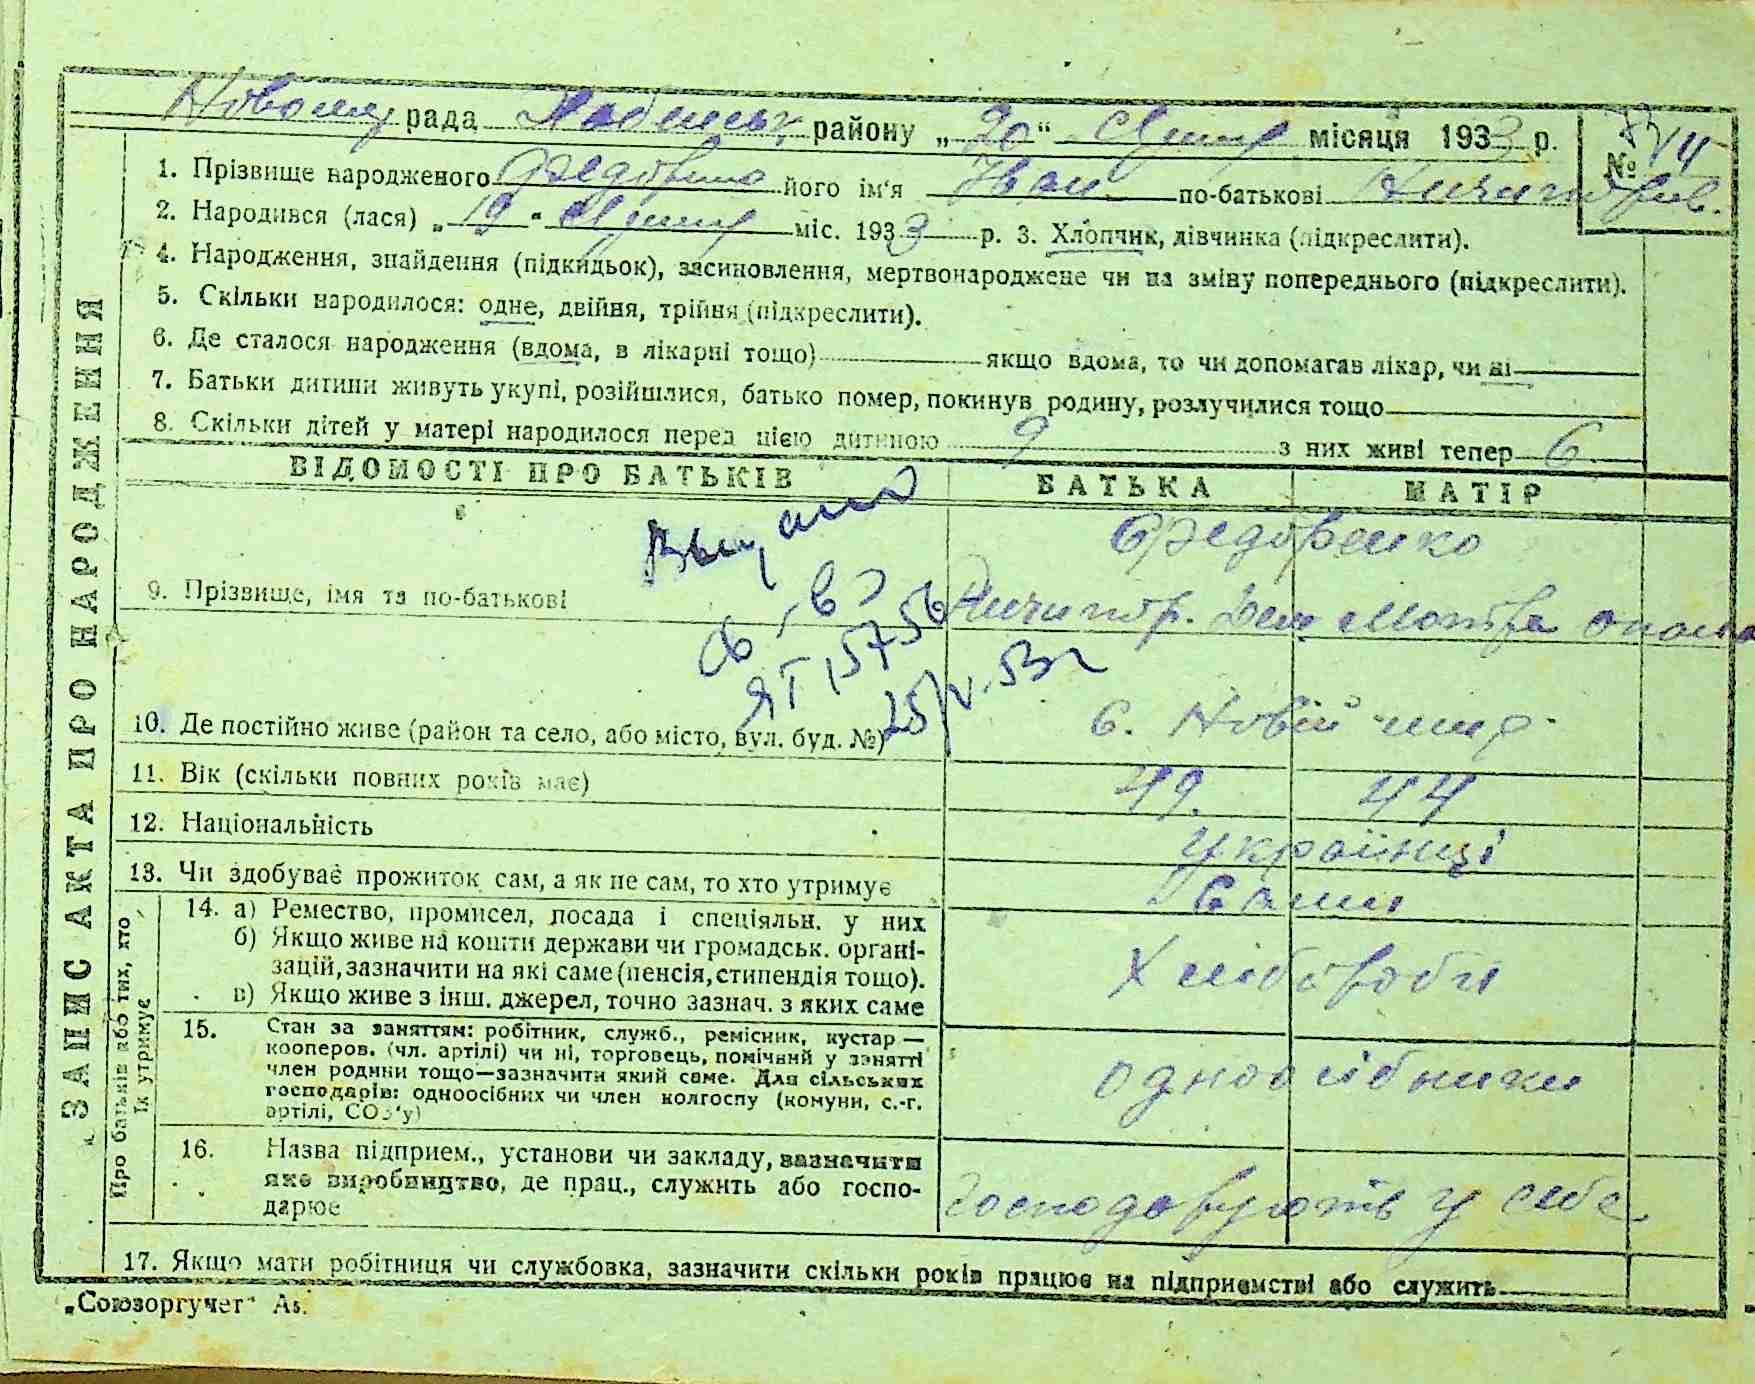 рада району „20“ місяця 1933 р.
№
1. Прізвище народженого його ім'я Іван по-батькові
2. Народився (лася) „19“ міс. 1933 р. 3. Хлопчик, дівчинка (підкреслити).
4. Народження, знайдення (підкидьок), засиновлення, мертвонароджене чи на зміну попереднього (підкреслити).
5. Скільки народилося: одне, двійня, трійня (підкреслити).
6. Де сталося народження (вдома, в лікарні тощо) якщо вдома, то чи допомагав лікар, чи ні
7. Батьки дитини живуть укупі, розійшлися, батько помер, покинув родину, розлучилися тощо
8. Скільки дітей у матері народилося перед цією дитиною 9 з них живі тепер 6
ЗАПИС АКТА ПРО НАРОДЖЕННЯ
ВІДОМОСТІ ПРО БАТЬКІВ БАТЬКА МАТІР
Федоренко
9. Прізвище, імя та по-батькові Ничипор. Дем Мотря
Выдано
св-во
ЯТ 15756
25/V.53г
10. Де постійно живе (район та село, або місто, вул. буд. №) с. Новій
11. Вік (скільки повних років має) 49. 44
12. Національність Українці
13. Чи здобуває прожиток сам, а як не сам, то хто утримує Сами
Про батьків або тих, хто їх утримує
14. а) Ремество, промисел, посада і спеціяльн. у них
б) Якщо живе на кошти держави чи громадськ. органі-
зацій, зазначити на які саме (пенсія, стипендія тощо).
в) Якщо живе з інш. джерел, точно зазнач. з яких саме
Хлібороби
15. Стан за заняттям: робітник, служб., ремісник, кустар —
кооперов. (чл. артілі) чи ні, торговець, помічний у занятті
член родини тощо—зазначити який саме. Для сільських
господарів: одноосібних чи член колгоспу (комуни, с.-г.
артілі, СОЗ'у)
одноосібники
16. Назва підприєм., установи чи закладу, зазначити
яке виробництво, де прац., служить або госпо-
дарює
господарують у себе
17. Якщо мати робітниця чи службовка, зазначити скільки років працює на підприємстві або служить
„Союзоргучет“ А5.